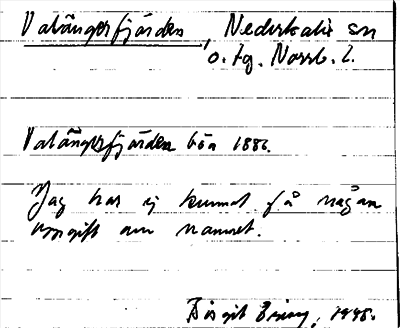 Valångerfjärden, Nederkalix sn
o. tg. Norrb. l.
Valångerfjärden bån 1886.
Jag har ej kunnat få någon
uppgift om namnet.
Birgit 1945.